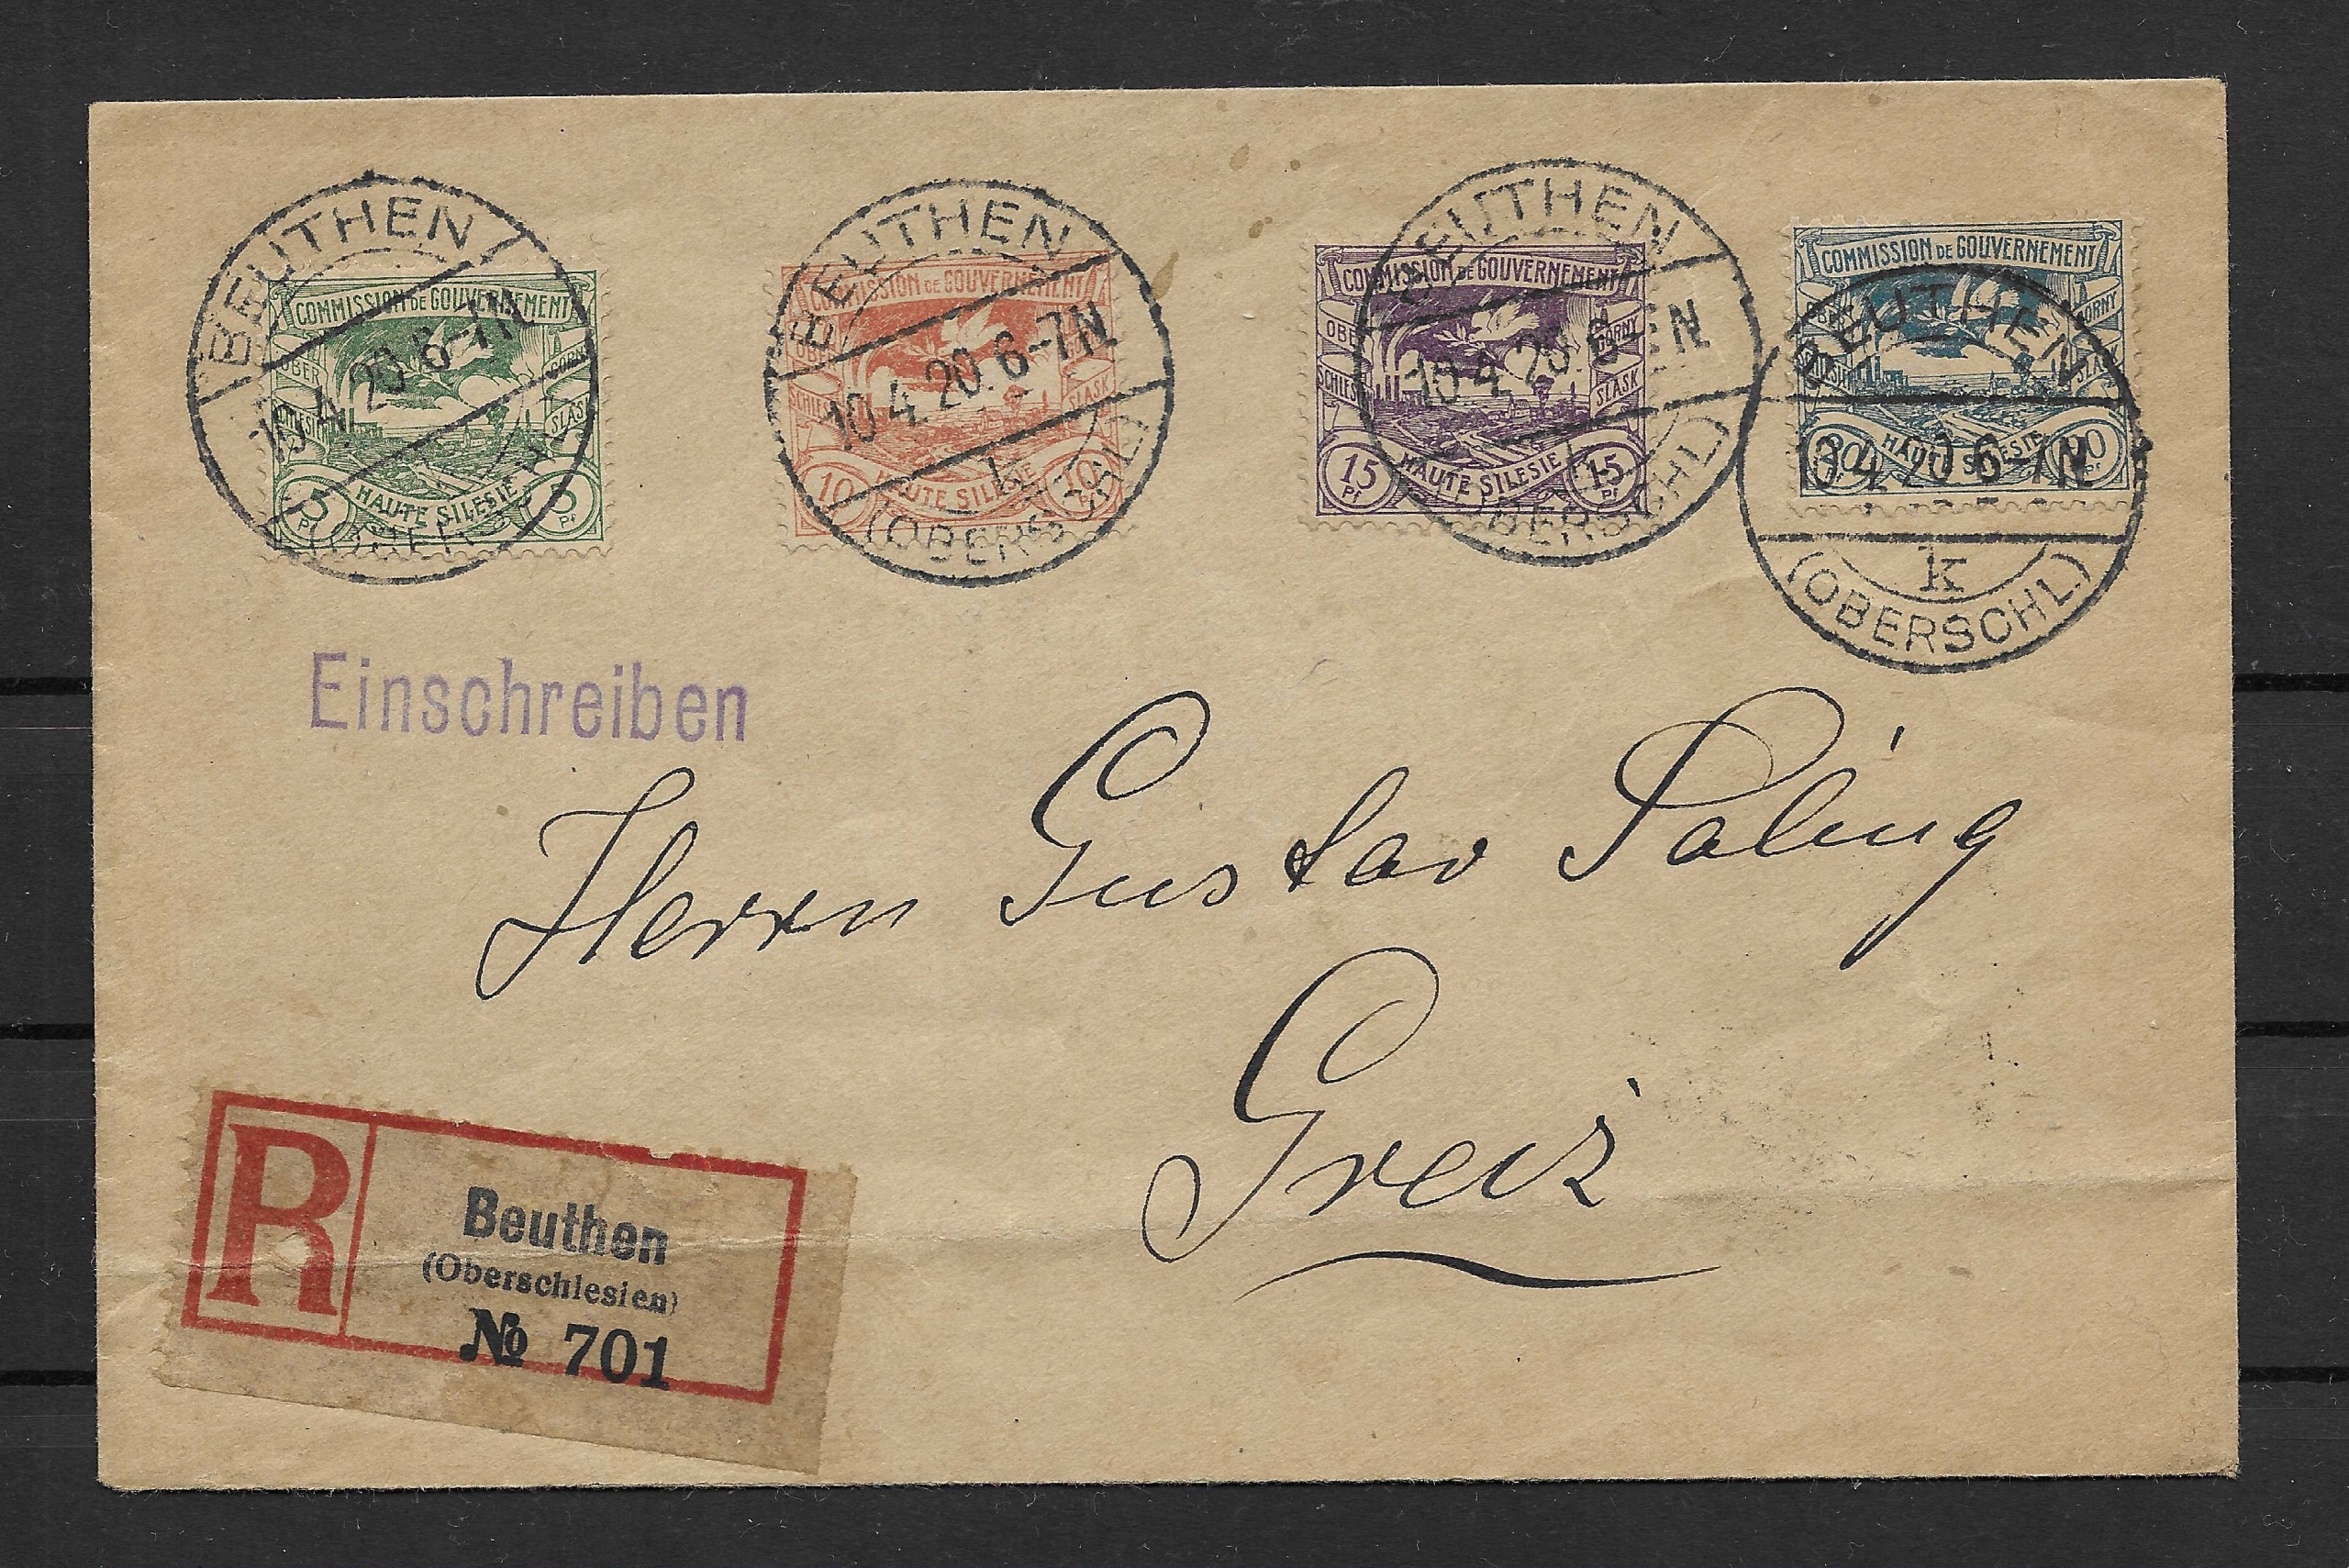 BEUTHEN
10.4.20.6-7N
(OBERSCHL.)
COMMISSION DE GOUVERNEMENT
OBER SCHLESIEN
GORNY SLASK
HAUTE SILESIE
5 Pf 5 Pf
BEUTHEN
10.4.20.6-7N
k
(OBERSCHL.)
COMMISSION DE GOUVERNEMENT
OBER SCHLESIEN
GORNY SLASK
HAUTE SILESIE
10 Pf 10 Pf
BEUTHEN
10.4.20.6-7N
k
(OBERSCHL.)
COMMISSION DE GOUVERNEMENT
OBER SCHLESIEN
GORNY SLASK
HAUTE SILESIE
15 Pf 15 Pf
BEUTHEN
10.4.20.6-7N
k
(OBERSCHL.)
COMMISSION DE GOUVERNEMENT
OBER SCHLESIEN
GORNY SLASK
HAUTE SILESIE
20 Pf 20 Pf
Einschreiben
Herrn Gustav
Greiz
R
Beuthen
(Oberschlesien)
№ 701